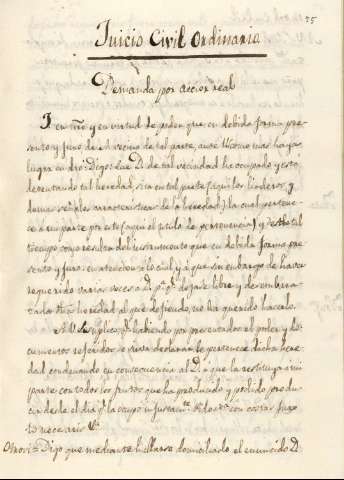 75
Juicio Civil Ordinario
Demanda por accion real
F en nre y en virtud de poder que en debida forma pre-
sento y juro de A vecino de tal parte, ante V como mas haya
lugar en dro Digo: Que D. de tal vecindad ha ocupado y está
disfrutando tal heredad, sita en tal parte (aqui los linderos y
demas señales caracteristicas de la heredad) la cual pertene-
ce a mi parte por este (aqui el titulo de pertenencia) y desde tal
tiempo como resulta del instrumento que en debida forma pre-
sento y juro: en atencion a lo cual y a que sin embargo de haver
requerido varias veces a D. pa. qe. dejase libre y desembara-
zada dha heredad al que defiendo, no ha querido hacerlo.
A V. Suplico qe. habiendo por presentados el poder y do-
cumentos referidos se sirva declarar le pertenece dicha here-
dad condenando en consecuencia al D. a que la restituya a mi
parte con todos los frutos que ha producido y podido produ-
cir desde el dia qe. la ocupo injustamte. con costas juro
lo necesario Va.
Otrosi = Digo que mediante hallarse domiciliado el enunciado D.